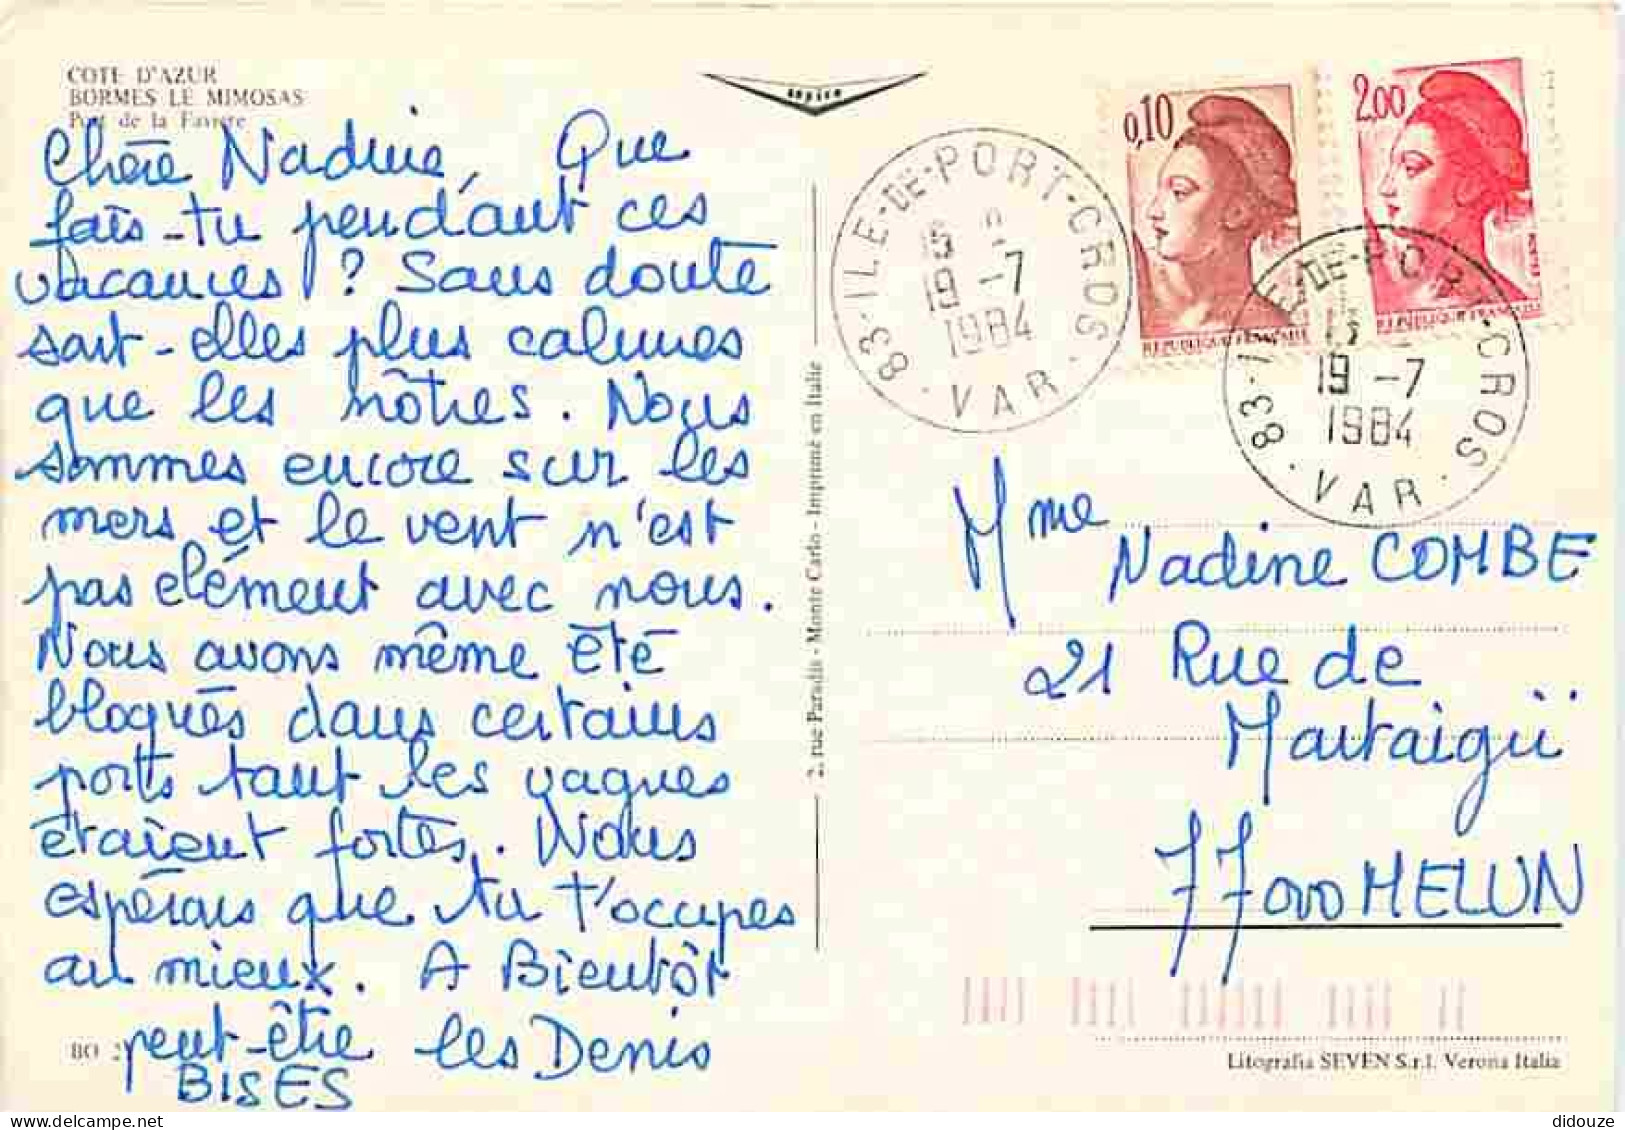 COTE D'AZUR
BORMES LE MIMOSAS
Port de la Favière
Chère Nadine, Que
fais-tu pendant ces
vacances ? Sans doute
sont-elles plus calmes
que les nôtres. Nous
sommes encore sur les
mers et le vent n'est
pas clément avec nous.
Nous avons même été
bloqués dans certains
ports tant les vagues
étaient fortes. Nous
espérons que tu t'occupes
au mieux. A Bientôt
peut-être les Denis
BISES
BO 2
2, rue Paradis - Monte Carlo - Imprimé en Italie
83-ILE-DE-PORT-CROS
19 -7
1984
VAR
0,10
REPUBLIQUE FRANÇAISE
2,00
REPUBLIQUE FRANÇAISE
83-ILE-DE-PORT-CROS
19 -7
1984
VAR
Mme Nadine COMBE
21 Rue de
Montaigü
77000 MELUN
Litografia SEVEN S.r.l. Verona Italia
didouze